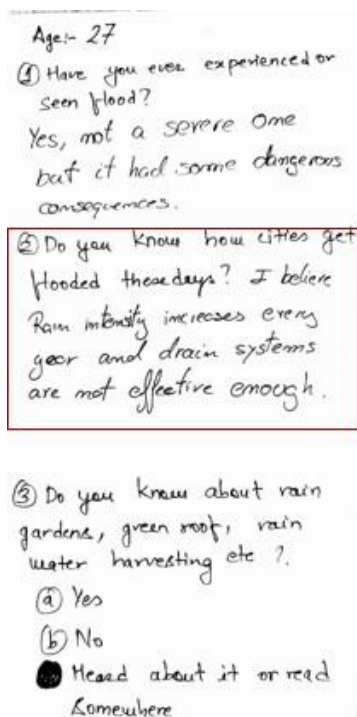 Age:- 27
① Have you ever experienced or
seen flood?
Yes, not a severe one
but it had some dangerous
consequences.
② Do you know how cities get
flooded these days? I believe
Rain intensity increases every
year and drain systems
are not effective enough.
③ Do you know about rain
gardens, green roof, rain
water harvesting etc ?.
ⓐ Yes
ⓑ No
Heard about it or read
Somewhere